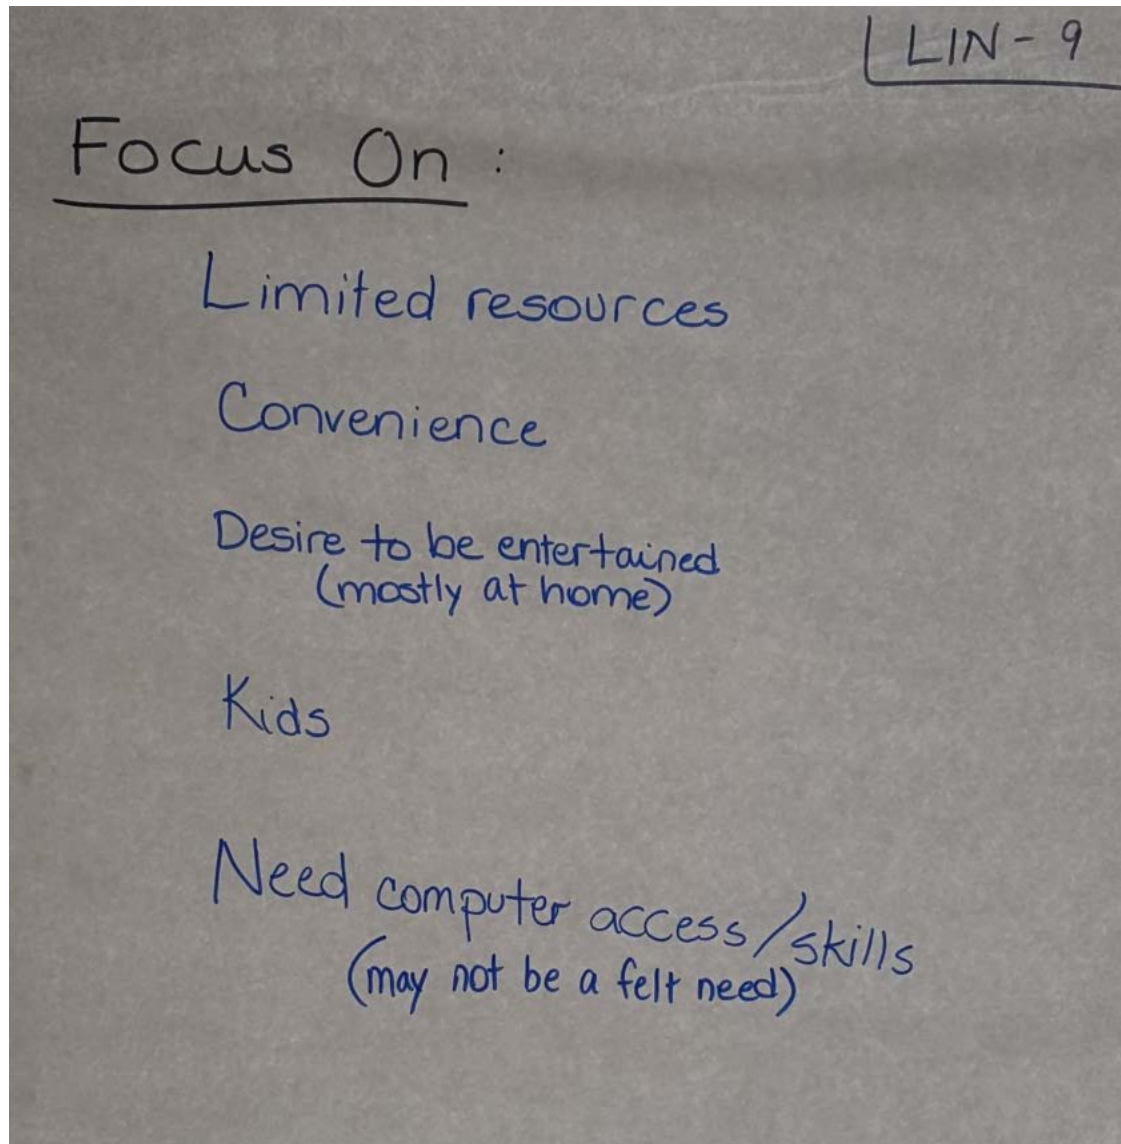 LIN - 9
Focus On :
Limited resources
Convenience
Desire to be entertained
(mostly at home)
Kids
Need computer access/skills
(may not be a felt need)